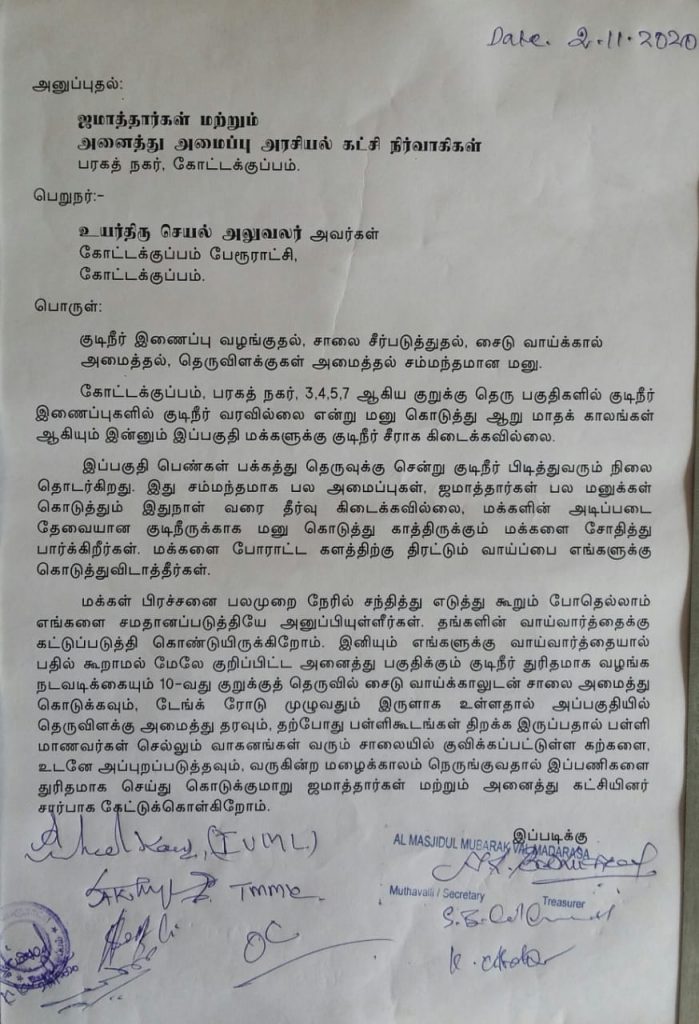 Date. 2.11.2020
அனுப்புதல்:
ஜமாத்தார்கள் மற்றும்
அனைத்து அமைப்பு அரசியல் கட்சி நிர்வாகிகள்
பரகத் நகர், கோட்டக்குப்பம்.
பெறுநர்:-
உயர்திரு செயல் அலுவலர் அவர்கள்
கோட்டக்குப்பம் பேரூராட்சி,
கோட்டக்குப்பம்.
பொருள்:
குடிநீர் இணைப்பு வழங்குதல், சாலை சீர்படுத்துதல், சைடு வாய்க்கால்
அமைத்தல், தெருவிளக்குகள் அமைத்தல் சம்மந்தமான மனு.
கோட்டக்குப்பம், பரகத் நகர், 3,4,5,7 ஆகிய குறுக்கு தெரு பகுதிகளில் குடிநீர்
இணைப்புகளில் குடிநீர் வரவில்லை என்று மனு கொடுத்து ஆறு மாதக் காலங்கள்
ஆகியும் இன்னும் இப்பகுதி மக்களுக்கு குடிநீர் சீராக கிடைக்கவில்லை.
இப்பகுதி பெண்கள் பக்கத்து தெருவுக்கு சென்று குடிநீர் பிடித்துவரும் நிலை
தொடர்கிறது. இது சம்மந்தமாக பல அமைப்புகள், ஜமாத்தார்கள் பல மனுக்கள்
கொடுத்தும் இதுநாள் வரை தீர்வு கிடைக்கவில்லை, மக்களின் அடிப்படை
தேவையான குடிநீருக்காக மனு கொடுத்து காத்திருக்கும் மக்களை சோதித்து
பார்க்கிறீர்கள். மக்களை போராட்ட களத்திற்கு திரட்டும் வாய்ப்பை எங்களுக்கு
கொடுத்துவிடாத்தீர்கள்.
மக்கள் பிரச்சனை பலமுறை நேரில் சந்தித்து எடுத்து கூறும் போதெல்லாம்
எங்களை சமதானப்படுத்தியே அனுப்பியுள்ளீர்கள். தங்களின் வாய்வார்த்தைக்கு
கட்டுப்படுத்தி கொண்டுயிருக்கிறோம். இனியும் எங்களுக்கு வாய்வார்த்தையால்
பதில் கூறாமல் மேலே குறிப்பிட்ட அனைத்து பகுதிக்கும் குடிநீர் துரிதமாக வழங்க
நடவடிக்கையும் 10-வது குறுக்குத் தெருவில் சைடு வாய்க்காலுடன் சாலை அமைத்து
கொடுக்கவும், டேங்க் ரோடு முழுவதும் இருளாக உள்ளதால் அப்பகுதியில்
தெருவிளக்கு அமைத்து தரவும், தற்போது பள்ளிகூடங்கள் திறக்க இருப்பதால் பள்ளி
மாணவர்கள் செல்லும் வாகனங்கள் வரும் சாலையில் குவிக்கப்பட்டுள்ள கற்களை,
உடனே அப்புறப்படுத்தவும், வருகின்ற மழைக்காலம் நெருங்குவதால் இப்பணிகளை
துரிதமாக செய்து கொடுக்குமாறு ஜமாத்தார்கள் மற்றும் அனைத்து கட்சியினர்
சார்பாக கேட்டுக்கொள்கிறோம்.
இப்படிக்கு
(IUML)
AL MASJIDUL MUBARAK VAL MADARASA
TMMK
Muthavalli / Secretary Treasurer